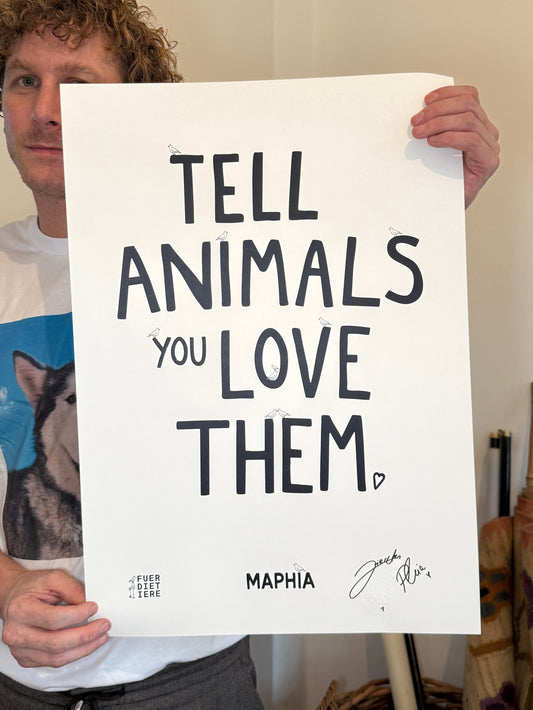 TELL
ANIMALS
YOU LOVE
THEM
FUER
DIET
IERE
MAPHIA